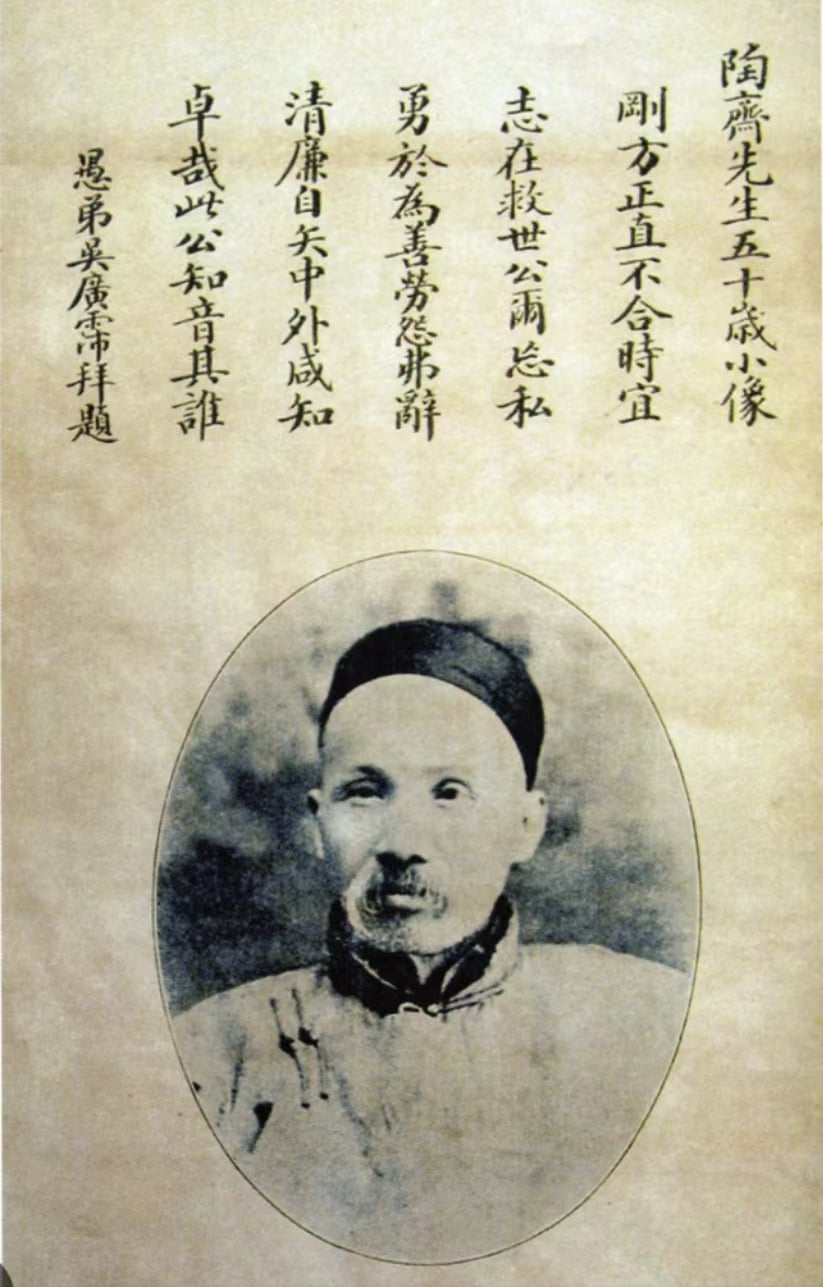 陶齋先生五十歲小像
剛方正直不合時宜
志在救世公爾忘私
勇於為善勞怨弗辭
清廉自矢中外咸知
卓哉此公知音其誰
愚弟吳廣霈拜題